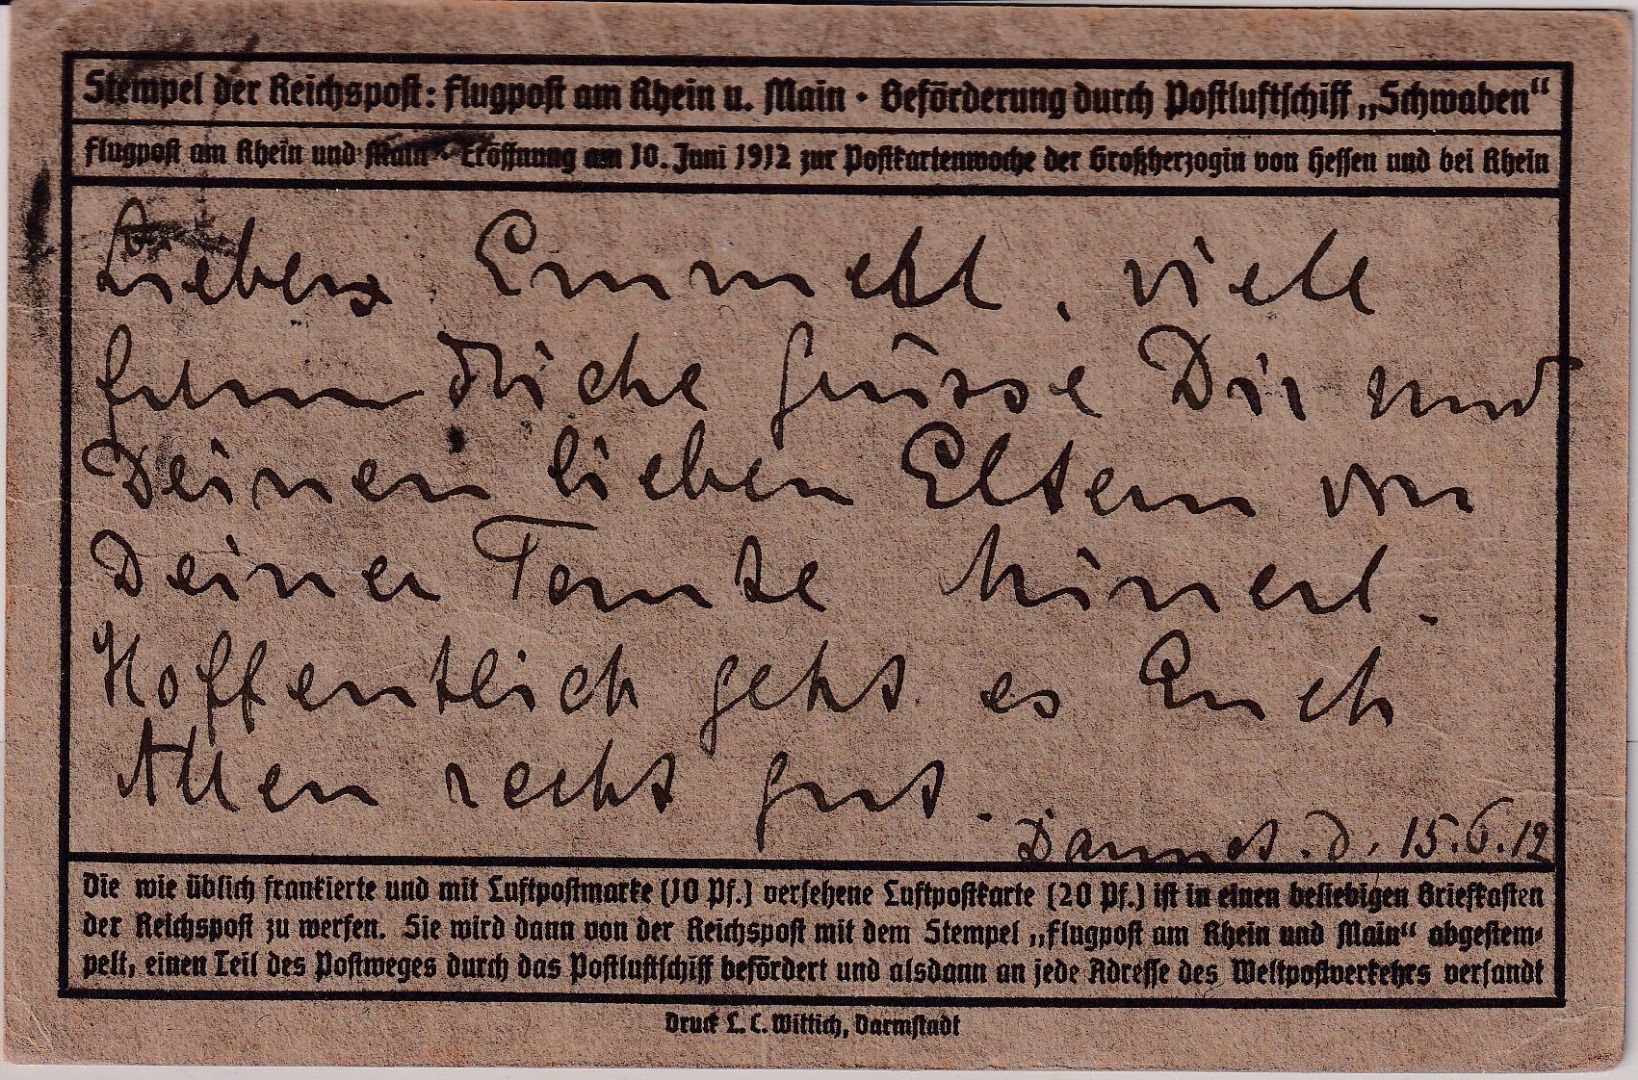 Stempel der Reichspost: Flugpost am Rhein u. Main · Beförderung durch Postluftschiff „Schwaben“
Flugpost am Rhein und Main · Eröffnung am 10. Juni 1912 zur Postkartenwoche der Großherzogin von Hessen und bei Rhein
Liebes Emmerl, viele
freundliche Grüsse Dir und
Deinen lieben Eltern von
Deiner Tante Minerl.
Hoffentlich geht es Euch
Allen recht gut.
Darmst. d. 15.6.12
Die wie üblich frankierte und mit Luftpostmarke (10 Pf.) versehene Luftpostkarte (20 Pf.) ist in einen beliebigen Briefkasten
der Reichspost zu werfen. Sie wird dann von der Reichspost mit dem Stempel „Flugpost am Rhein und Main“ abgestem-
pelt, einen Teil des Postweges durch das Postluftschiff befördert und alsdann an jede Adresse des Weltpostverkehrs versandt
Druck L. C. Wittich, Darmstadt